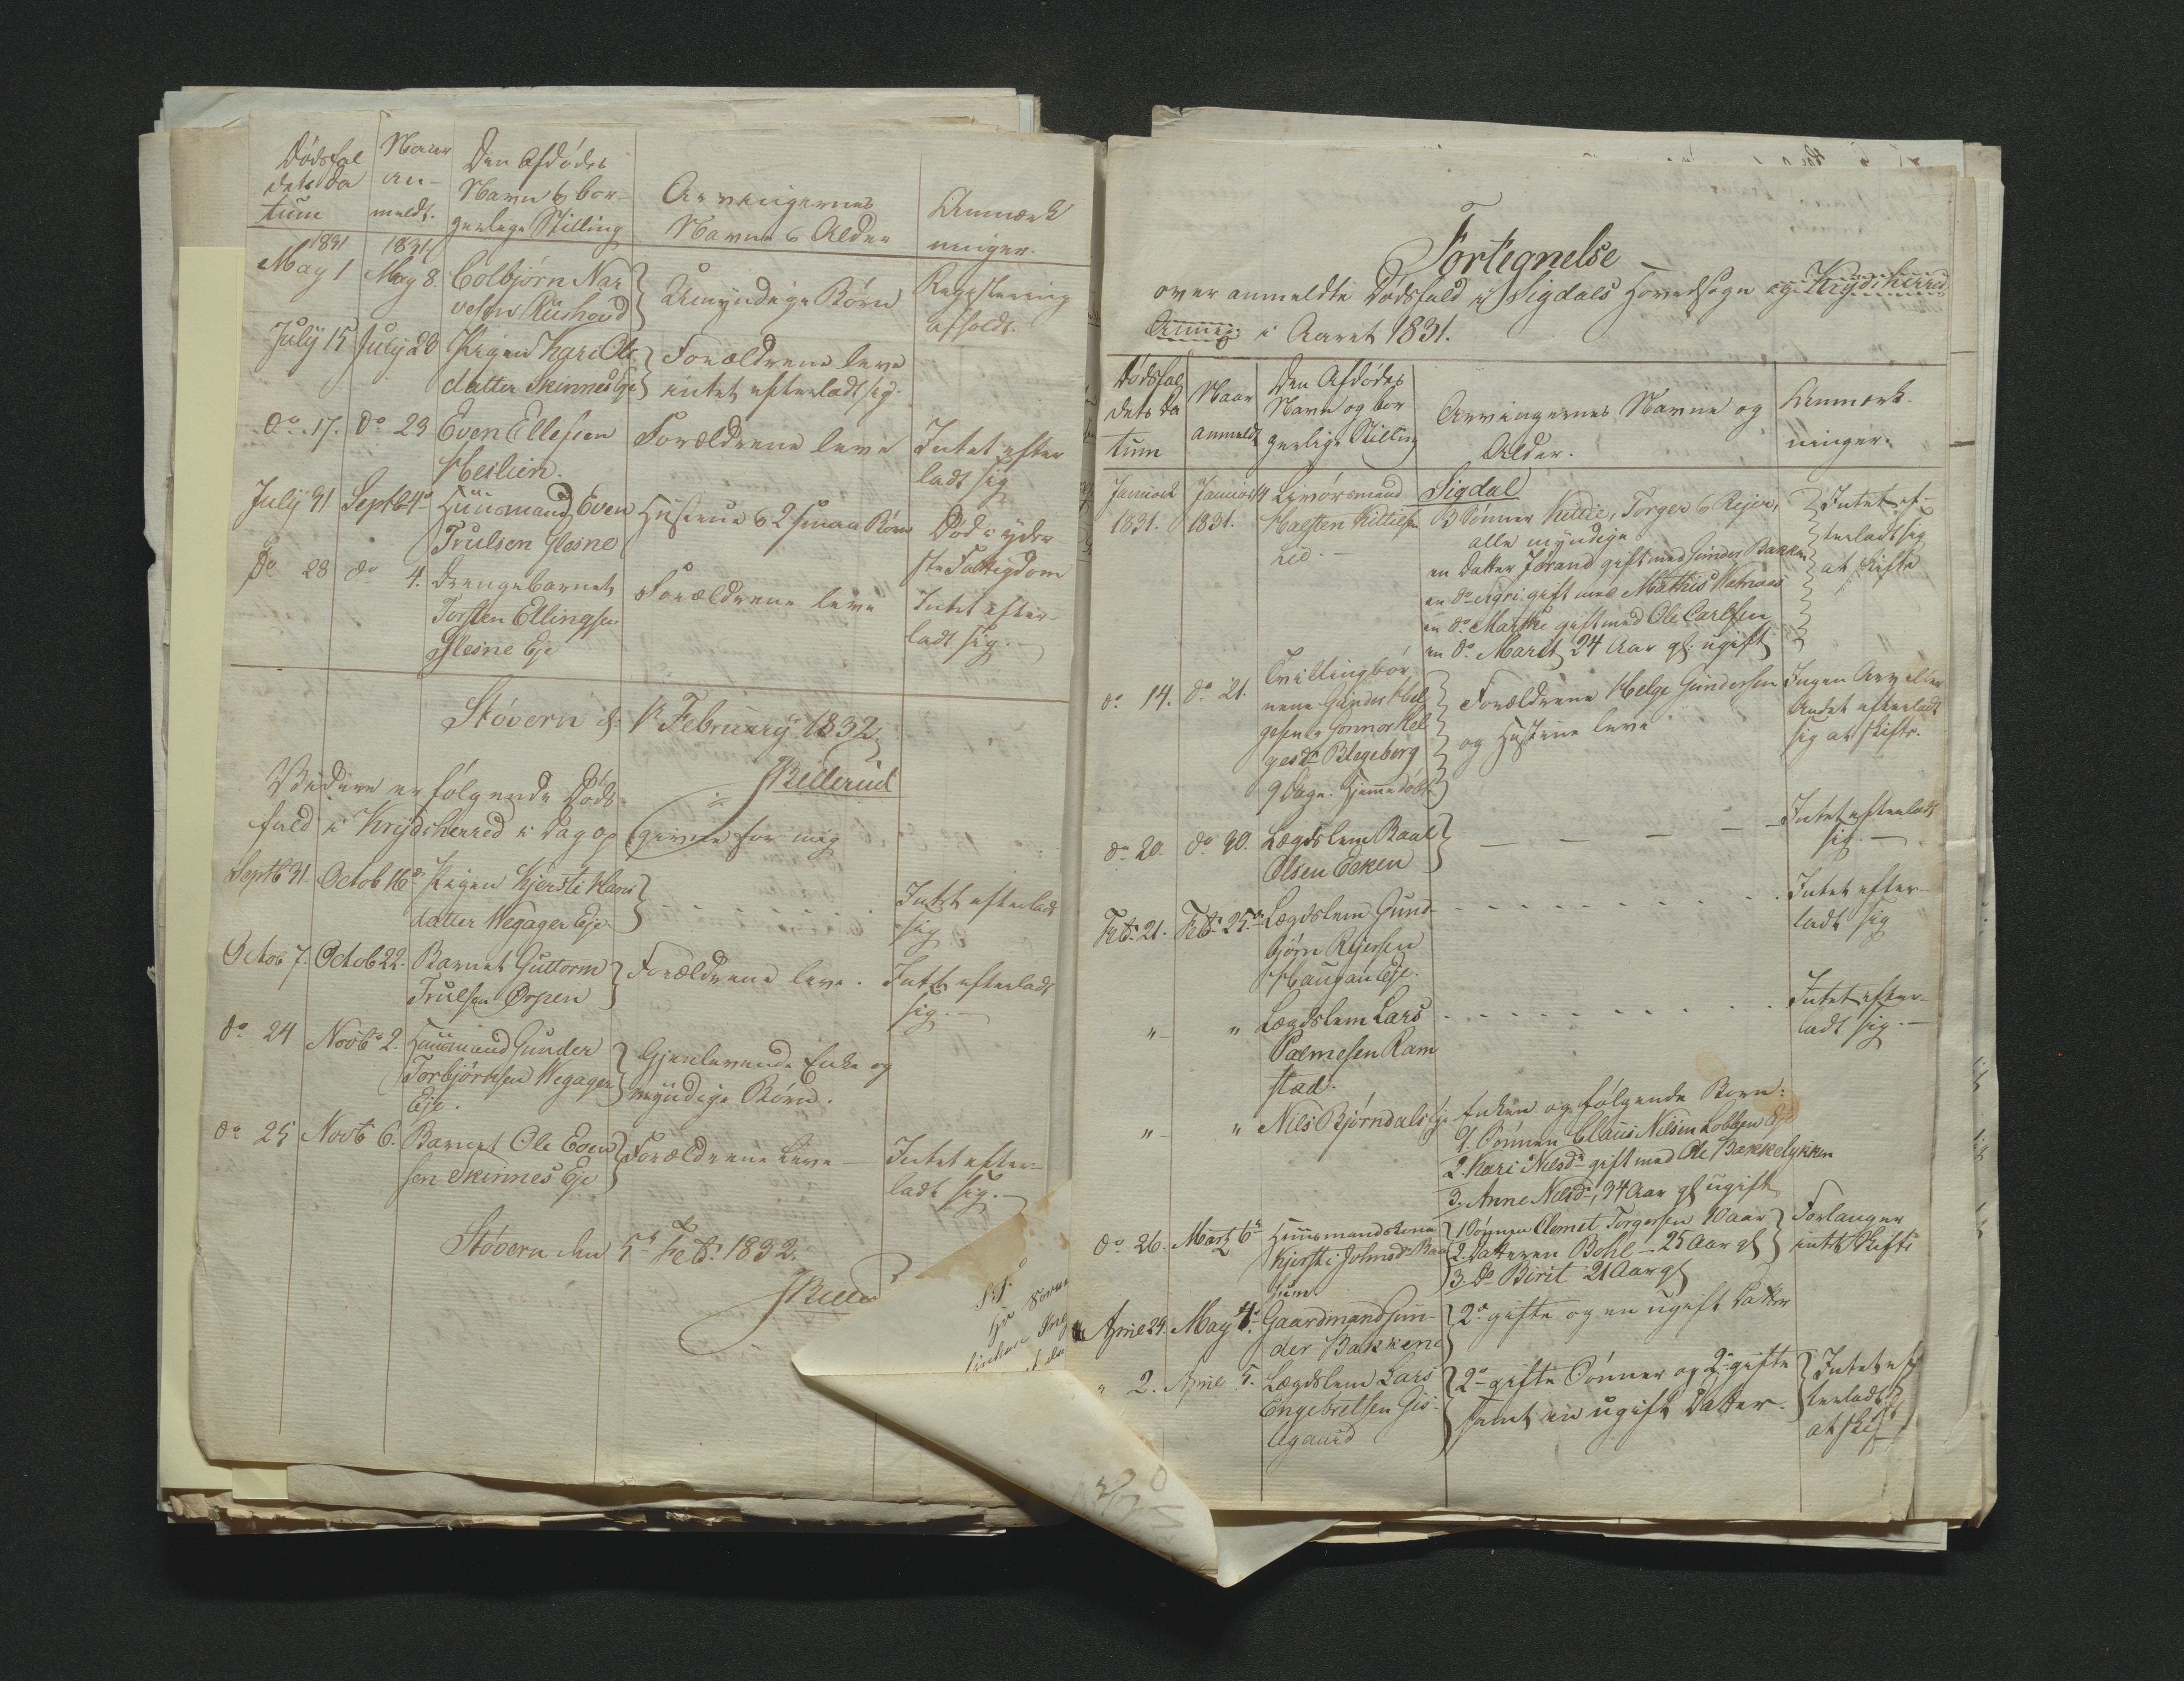 Dødsfal
dets Da
tum
Naar
an-
meldt.
Den Afdødes
Navn & bor-
gerlige Stilling
Arvingernes
Navne & Alder
Anmærk
ninger.
1831
1831
May 1 May 8. Colbjørn Nar
vesen Ruishovd
Umyndige Børn
Registrering
afholdt.
July 15 July 20 Pigen Kari Ols
datter Skinnes Eje
Forældrene leve
intet efterladt sig.
do. 17. do 23 Even Ellefsen
Heilien.
Forældrene leve
Intet efter
ladt sig
July 31 Septb 4de Huusmand Even
Trulsen Glesne
Hustrue & 2 smaa Børn
Død i yder
ste Fattigdom
do 28 do 4. Drengebarnet
Torsten Ellingsen
Glesne Eje
Forældrene leve
Intet efter-
ladt sig.
Støvern d: 1ste February 1832.
JBellerud
Videre er følgende Døds
fald i Krydsherred i Dag op givne for mig
Septb 31. Octob 16de Pigen Kjersti Hans
datter Wegager Eje
Intet efterladt
sig
Octob 7. Octob 22. Barnet Guttorm
Trulsen Ørpen
Forældrene leve.
Intet efterladt
sig.
do 24 Novbr 2. Huusmand Gunder
Torbjørnsen Wegager
Eje.
Gjenlevende Enke og
myndige Børn.
do 25 Novb 6. Barnet Ole Even
sen Skinnes Eje
Forældrene Leve
Intet efter-
ladt sig.
Støvern den 5te Feb: 1832.
JBelle
Fortegnelse
over anmeldte Dødsfald i Sigdals Hovedsogn og Krydsherred
Annex i Aaret 1831.
Dødsfal
dets Da
tum
Naar
anmeldt
Den Afdødes
Navn og bor
gerlige Stilling
Arvingernes Navne og
Alder.
Anmærk-
ninger.
Sigdal
1831. 1831.
Halsten Kittilsen
Lie.
3 Sønner Kittil, Torger & Rejer,
alle myndige
en Datter Jørand gift med Gunder Bakken
en do Sigri gift med Mathis
en do. Marthe gift med Ole Carlsen
en do. Marit 24 Aar gl: ugift
Intet ef-
terladt sig
at skifte
do. 14. do 21. Tvillingbør
nene Gunder Hel
gesen & Gonnor Hel
gesdr Blegeberg
9 Dage. Hjemmedøbt
Forældrene Helge Gundersen
og Hustrue leve
Ingen Arv eller
Andet efterladt
sig at skifte.
do 20. do 30. Lægdslem Paal
Olsen Eeken
Intet efterladt
sig.
Feb: 21. Feb: 25de Lægdslem Gund-
bjørn Rejersen
Haugan Eje.
Intet efter-
ladt sig
" " Lægdslem Lars
Palmesen Ram
stad.
Intet efter-
ladt sig.
" " Nils Bjørndals Eje
Enken og følgende Børn:
1. Sønnen Claus Nilsen Lobben Eje
2. Kari Nilsdr gift med Ole Bakkelykken
3. Anne Nilsdr, 34 Aar gl ugift
do 26. Martz 6te Huusmandskone
Kjersti Johnsdr
1 Sønnen Clemet Torgersen 10 aar
2. Datteren Bohl - 25 Aar gl
3. do Birit 21 Aar gl
Forlanger
intet Skifte
April 29. May 4de. Gaardmand Gun-
der Bakkene
2de gifte og en ugift Datter
" 2. April 5. Lægdslem Lars
Engebretsen Gis-
legaard
2de gifte Sønner og 2de gifte
samt en ugift Datter.
Intet ef
terladt
at skif